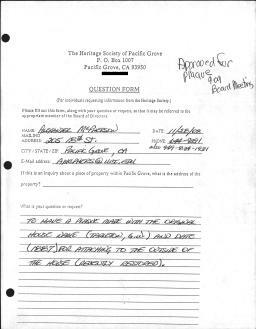 The Heritage Society of Pacific Grove
P. O. Box 1007
Pacific Grove, CA 93950
Approved for
plaque
Board Meeting
QUESTION FORM
(For individuals requesting information from the Heritage Society)
Please fill out this form, along with your question or request, so that it may be referred to the
appropriate member of the Board of Directors.
NAME: McPHERSON DATE:
MAILING
ADDRESS: PHONE
CITY / STATE / ZIP: PACIFIC GROVE, CA
E-Mail address:
If this is an inquiry about a piece of property within Pacific Grove, what is the address of the
property?
What is your question or request?
TO HAVE A PLAQUE MADE WITH THE ORIGINAL
HOUSE NAME AND DATE
(1887) FOR ATTACHING TO THE OUTSIDE OF
THE HOUSE (RECENTLY RESTORED).